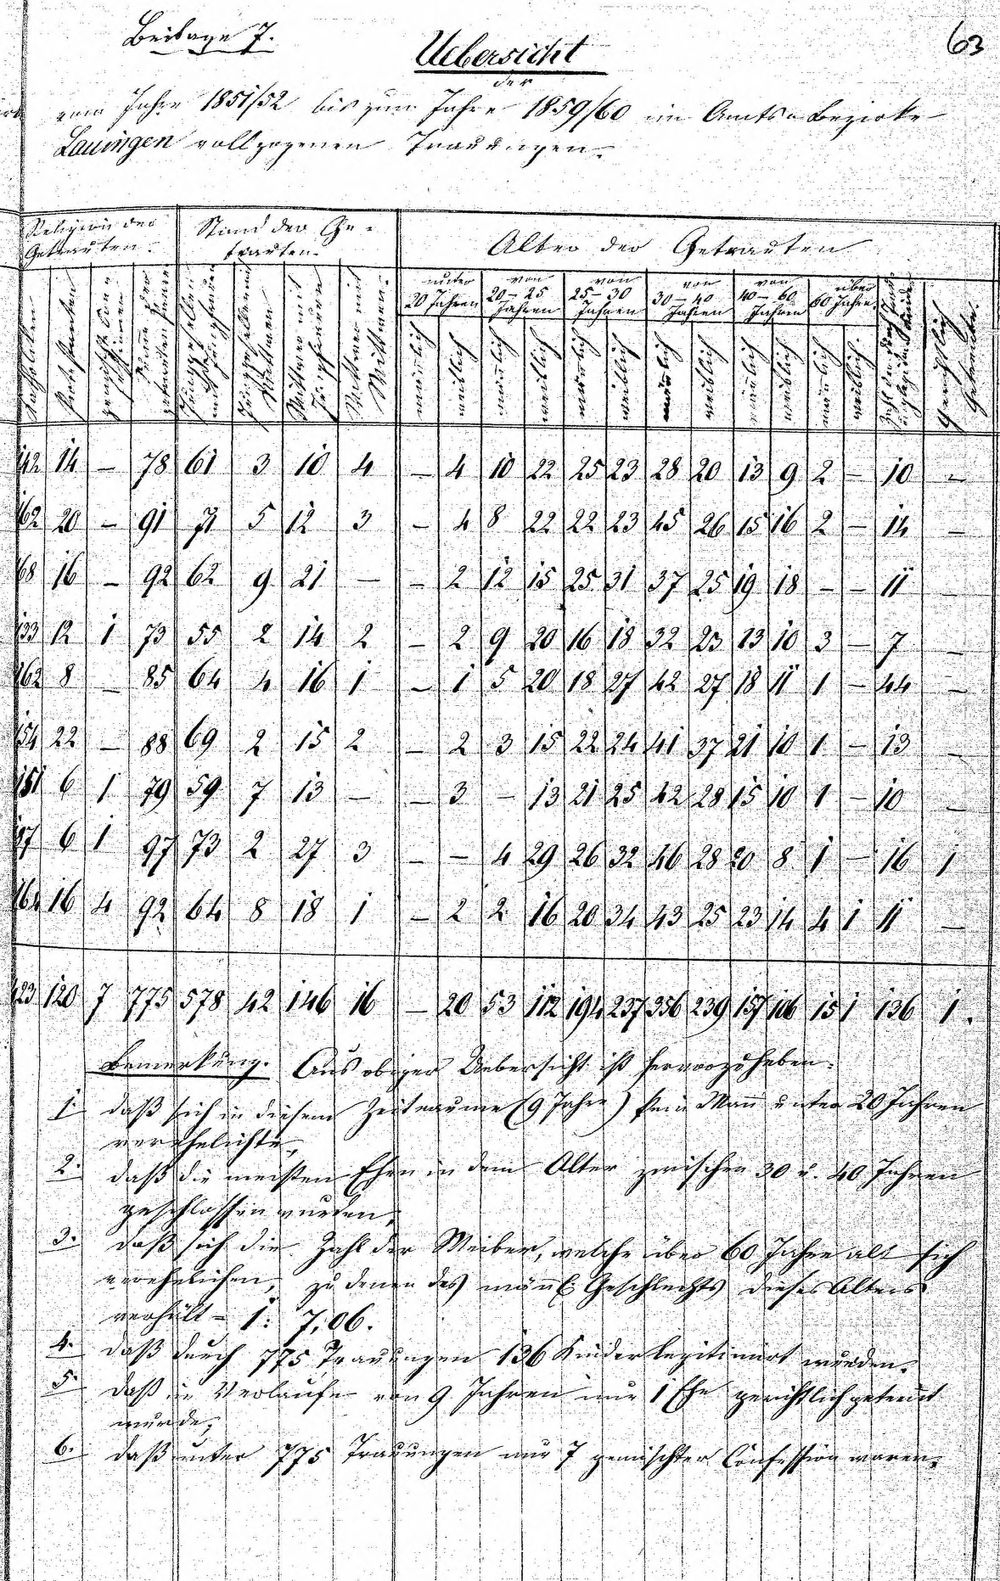 Beilage 7.
63
Uebersicht
der
vom Jahre 1851/52 bis zum Jahre 1859/60 im Amts-Bezirke
Lauingen vollzogenen Trauungen.
Religion der Getrauten.
Stand der Getrauten.
Alter der Getrauten
unter 20 Jahren
von 20-25 Jahren
von 25-30 Jahren
von 30-40 Jahren
von 40-60 Jahren
über 60 Jahre.
Katholiken
Protestanten
Wittwer mit Jungfrauen
Wittwer mit Wittwen.
männlich weiblich männlich weiblich männlich weiblich männlich weiblich männlich weiblich männlich weiblich.
Gerichtlich Getrennte.
142 14 - 78 61 3 10 4 - 4 10 22 25 23 28 20 13 9 2 - 10 -
162 20 - 91 71 5 12 3 - 4 8 22 22 23 45 26 15 16 2 - 14 -
168 16 - 92 62 9 21 - - 2 12 15 25 31 37 25 19 18 - - 11 -
133 12 1 73 55 2 14 2 - 2 9 20 16 18 32 23 13 10 3 - 7 -
162 8 - 85 64 4 16 1 - 1 5 20 18 27 42 27 18 11 1 - 44 -
154 22 - 88 69 2 15 2 - 2 3 15 22 24 41 37 21 10 1 - 13 -
151 6 1 79 59 7 13 - - 3 - 13 21 25 42 28 15 10 1 - 10 -
187 6 1 97 73 2 27 3 - - 4 29 26 32 46 28 20 8 1 - 16 1
164 16 4 92 64 8 18 1 - 2 2 16 20 34 43 25 23 14 4 1 11 -
423 120 7 775 578 42 146 16 - 20 53 172 194 237 356 239 157 106 15 1 136 1.
Bemerkung. Aus obiger Uebersicht ist hervorzuheben.
1. daß sich in diesem Zeitraume (9 Jahre) kein Mann unter 20 Jahren
verehelichte,
2. daß die meisten Ehen in dem Alter zwischen 30 u. 40 Jahren
geschlossen wurden,
3. daß sich die Zahl der Weiber, welche über 60 Jahre alt sich
verehelichen, zu denen des männl. Geschlechts dieses Alters
verhält = 1: 7,06.
4. daß durch 775 Trauungen 136 Kinder legitimirt wurden.
5. daß im Verlaufe von 9 Jahren nur 1 Ehe gerichtlich getrennt
wurde;
6. daß unter 775 Trauungen nur 7 gemischter Confession waren.